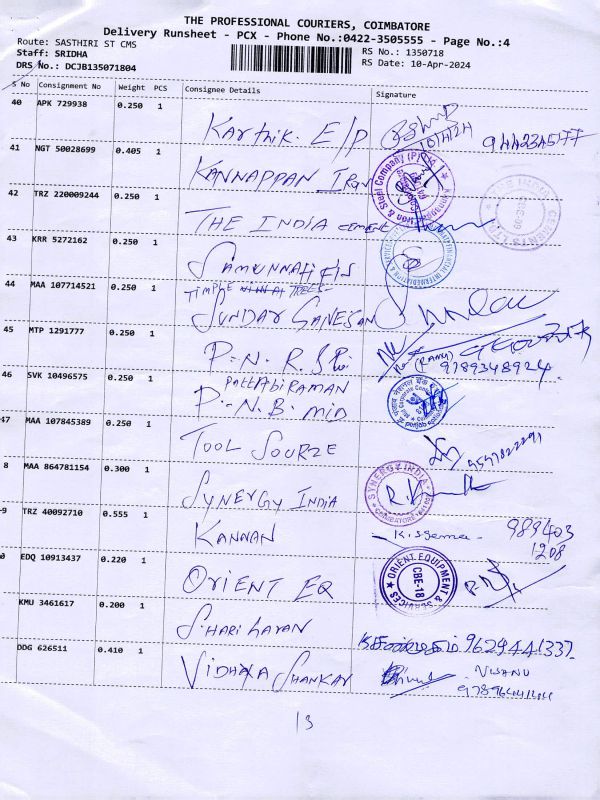 THE PROFESSIONAL COURIERS, COIMBATORE
Delivery Runsheet - PCX - Phone No.:0422-3505555 - Page No.:4
Route: SASTHIRI ST CMS
Staff: SRIDHA
DRS No.: DCJB135071804
RS No.: 1350718
RS Date: 10-Apr-2024
S No Consignment No Weight PCS Consignee Details Signature
40 APK 729938 0.250 1
Karthik. E/P
9442345177
41 NGT 50028699 0.405 1
KANNAPPAN Iron
42 TRZ 220009244 0.250 1
THE INDIA cement
43 KRR 5272162 0.250 1
SAMUNNATI FIS
44 MAA 107714521 0.250 1
TIMPLE TREES
SUNDAR GANESAN
45 MTP 1291777 0.250 1
P.N.R.S
(RAMY)
9789348924
46 SVK 10496575 0.250 1
PattAbiRAMAN
P.N.B. MID
47 MAA 107845389 0.250 1
TOOL SOURZE
8 MAA 864781154 0.300 1
SYNERGY INDIA
SYNERGY INDIA
COIMBATORE
9 TRZ 40092710 0.555 1
KANNAN
989403
1208
0 EDQ 10913437 0.220 1
ORIENT EQ
ORIENT EQUIPMENT & SERVICES
CBE-18
KMU 3461617 0.200 1
S.HARI HARAN
9629441337
DDG 626511 0.410 1
VIDHYA SHANKAR
13